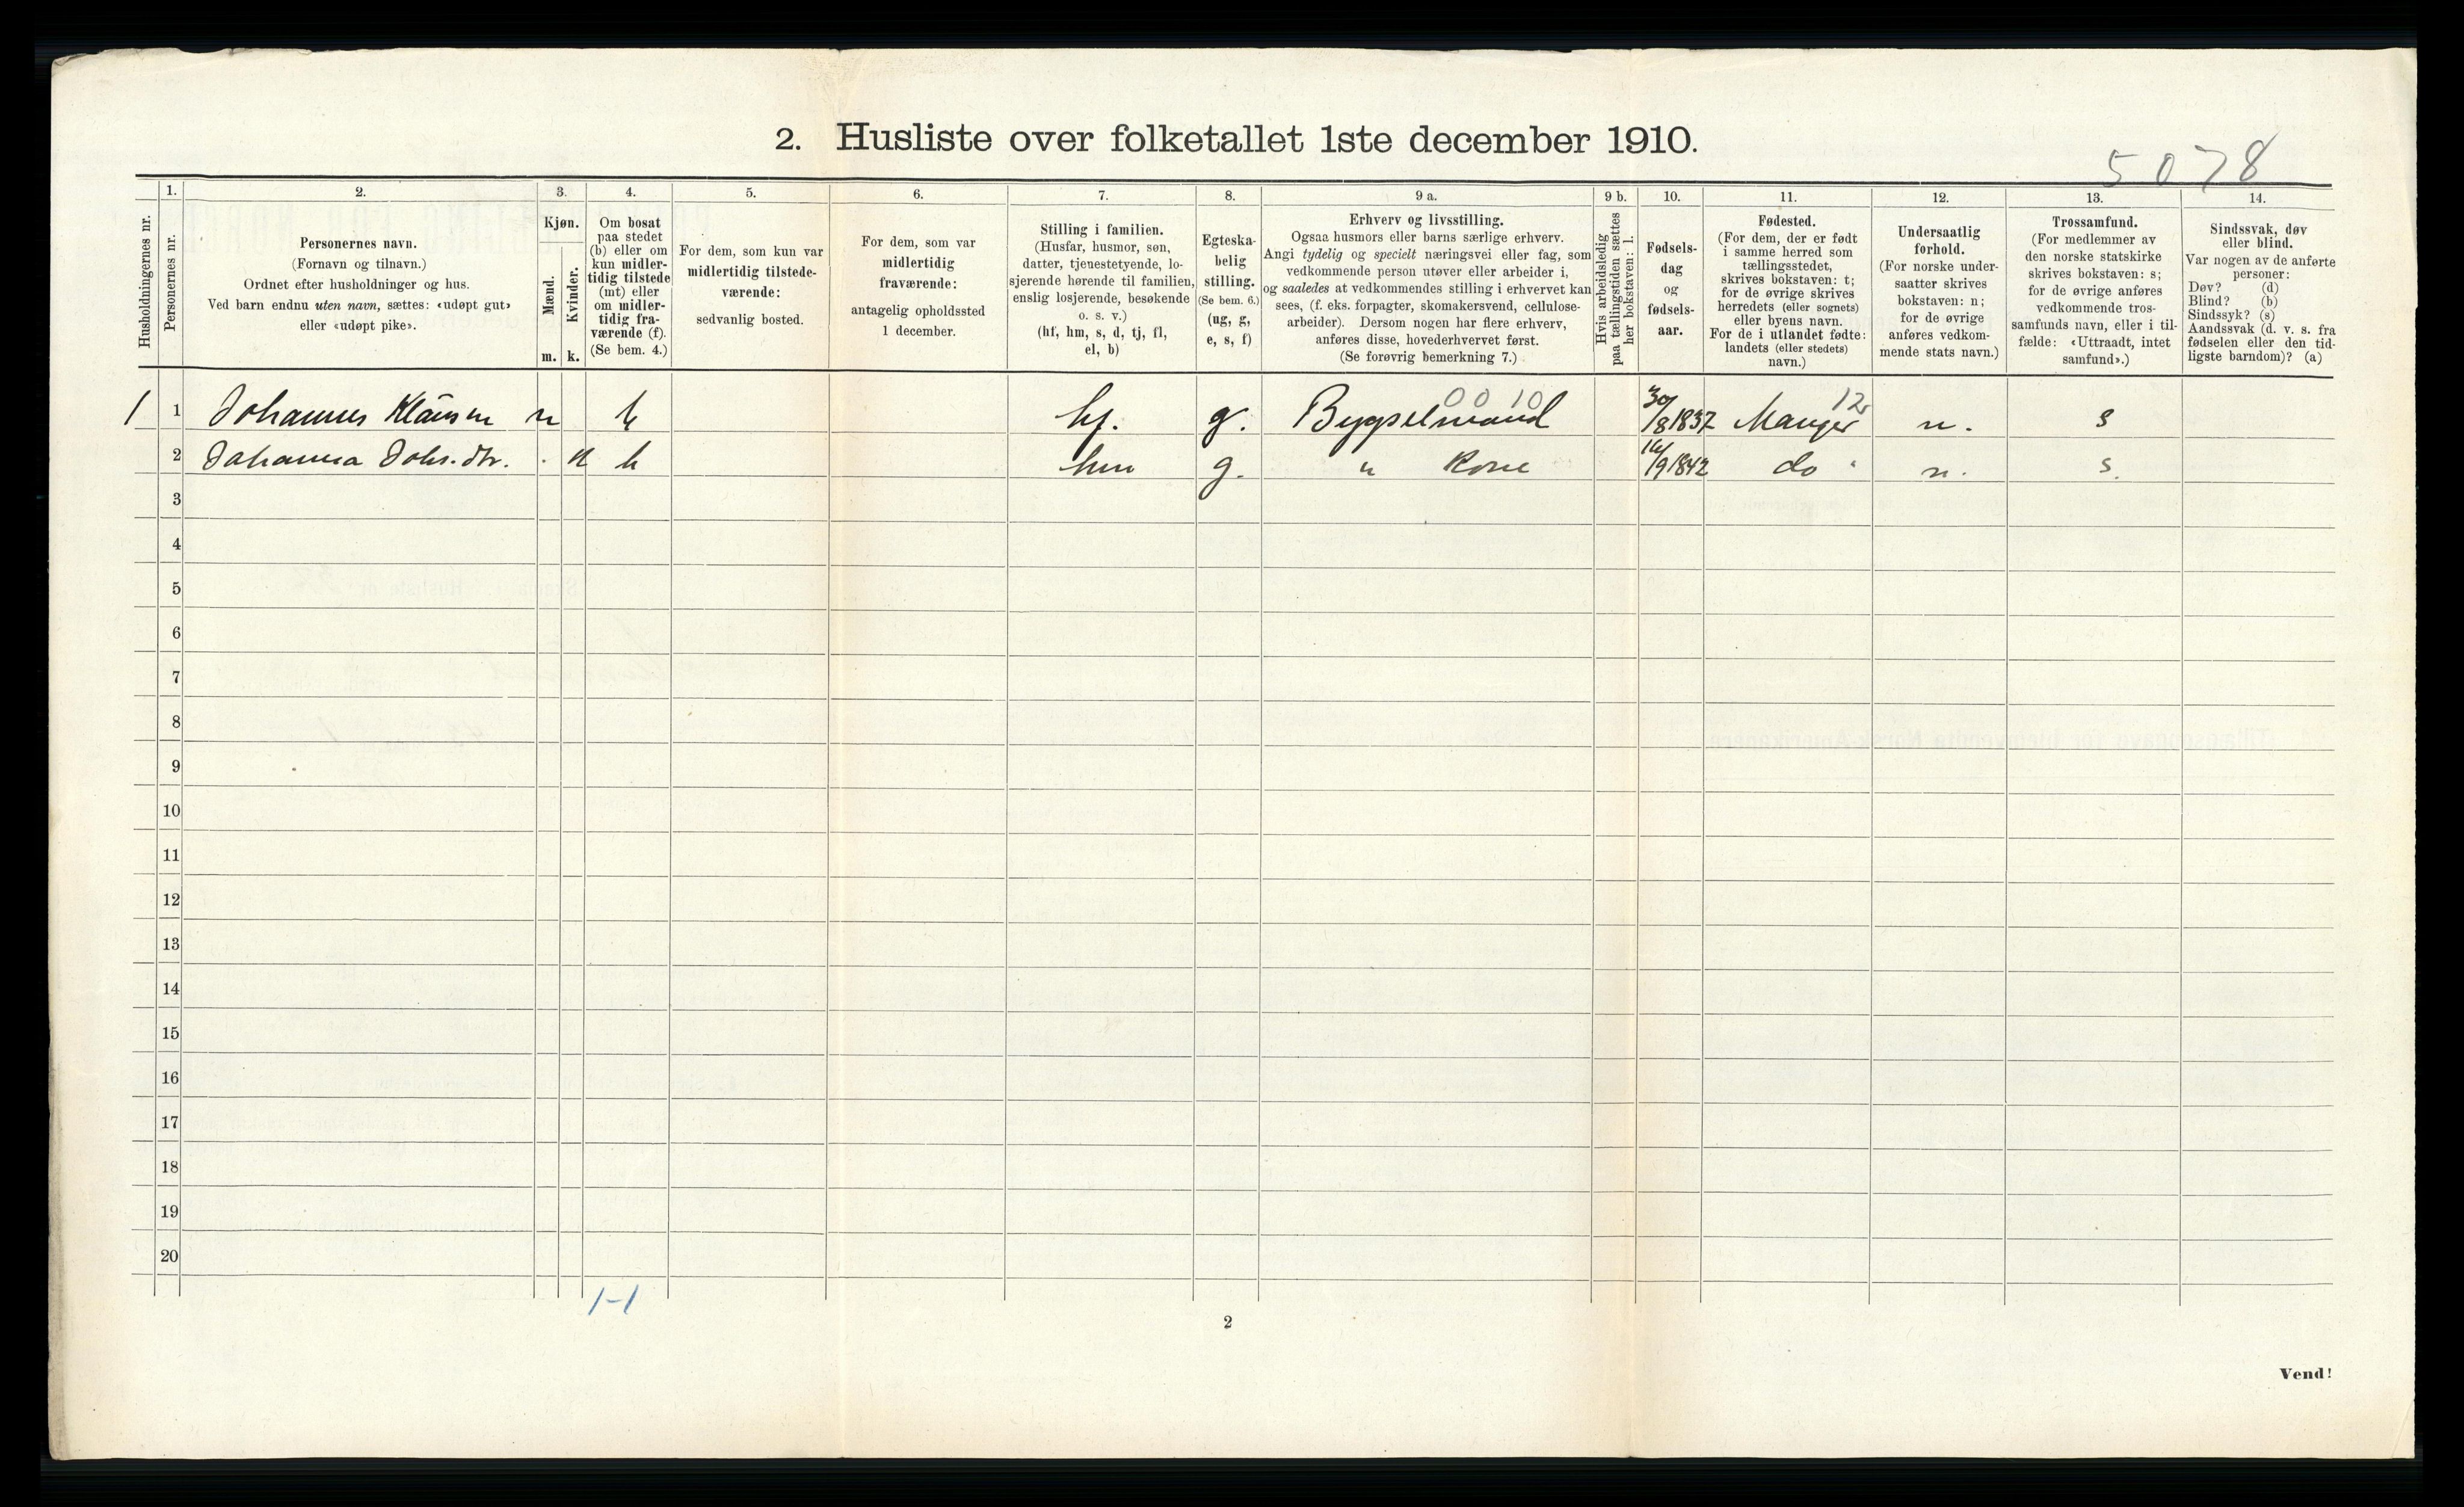 2. Husliste over folketallet 1ste december 1910.
5078
Husholdningernes nr.
1.
Personernes nr.
2.
Personernes navn.
(Fornavn og tilnavn.)
Ordnet efter husholdninger og hus.
Ved barn endnu uten navn, sættes: «udøpt gut»
eller «udøpt pike».
3.
Kjøn.
Mænd.
m.
Kvinder.
k.
4.
Om bosat
paa stedet
(b) eller om
kun midler-
tidig tilstede
(mt) eller
om midler-
tidig fra-
værende (f).
(Se bem. 4.)
5.
For dem, som kun var
midlertidig tilstede-
værende:
sedvanlig bosted.
6.
For dem, som var
midlertidig
fraværende:
antagelig opholdssted
1 december.
7.
Stilling i familien.
(Husfar, husmor, søn,
datter, tjenestetyende, lo-
sjerende hørende til familien,
enslig losjerende, besøkende
o. s. v.)
(hf, hm, s, d, tj, fl,
el, b)
8.
Egteska-
belig
stilling.
(Se bem. 6.)
(ug, g,
e, s, f)
9 a.
Erhverv og livsstilling.
Ogsaa husmors eller barns særlige erhverv.
Angi tydelig og specielt næringsvei eller fag, som
vedkommende person utøver eller arbeider i,
og saaledes at vedkommendes stilling i erhvervet kan
sees, (f. eks. forpagter, skomakersvend, cellulose-
arbeider). Dersom nogen har flere erhverv,
anføres disse, hovederhvervet først.
(Se forøvrig bemerkning 7.)
9 b.
Hvis arbeidsledig
paa tællingstiden sættes
her bokstaven: l.
10.
Fødsels-
dag
og
fødsels-
aar.
11.
Fødested.
(For dem, der er født
i samme herred som
tællingsstedet,
skrives bokstaven: t;
for de øvrige skrives
herredets (eller sognets)
eller byens navn.
For de i utlandet fødte:
landets (eller stedets)
navn.)
12.
Undersaatlig
forhold.
(For norske under-
saatter skrives
bokstaven: n;
for de øvrige
anføres vedkom-
mende stats navn.)
13.
Trossamfund.
(For medlemmer av
den norske statskirke
skrives bokstaven: s;
for de øvrige anføres
vedkommende tros-
samfunds navn, eller i til-
fælde: «Uttraadt, intet
samfund».)
14.
Sindssvak, døv
eller blind.
Var nogen av de anførte
personer:
Døv? (d)
Blind? (b)
Sindssyk? (s)
Aandssvak (d. v. s. fra
fødselen eller den tid-
ligste barndom)? (a)
1 1 Johannes Klausen m b hf. g. Bygselmand 0010 30/8 1837 Manger 12 n. s
2 Johanna Johs.dtr. . k b hm g. " Kone 14/9 1842 do n. s.
3
4
5
6
7
8
9
10
11
12
13
14
15
16
17
18
19
20
1-1
2
Vend!